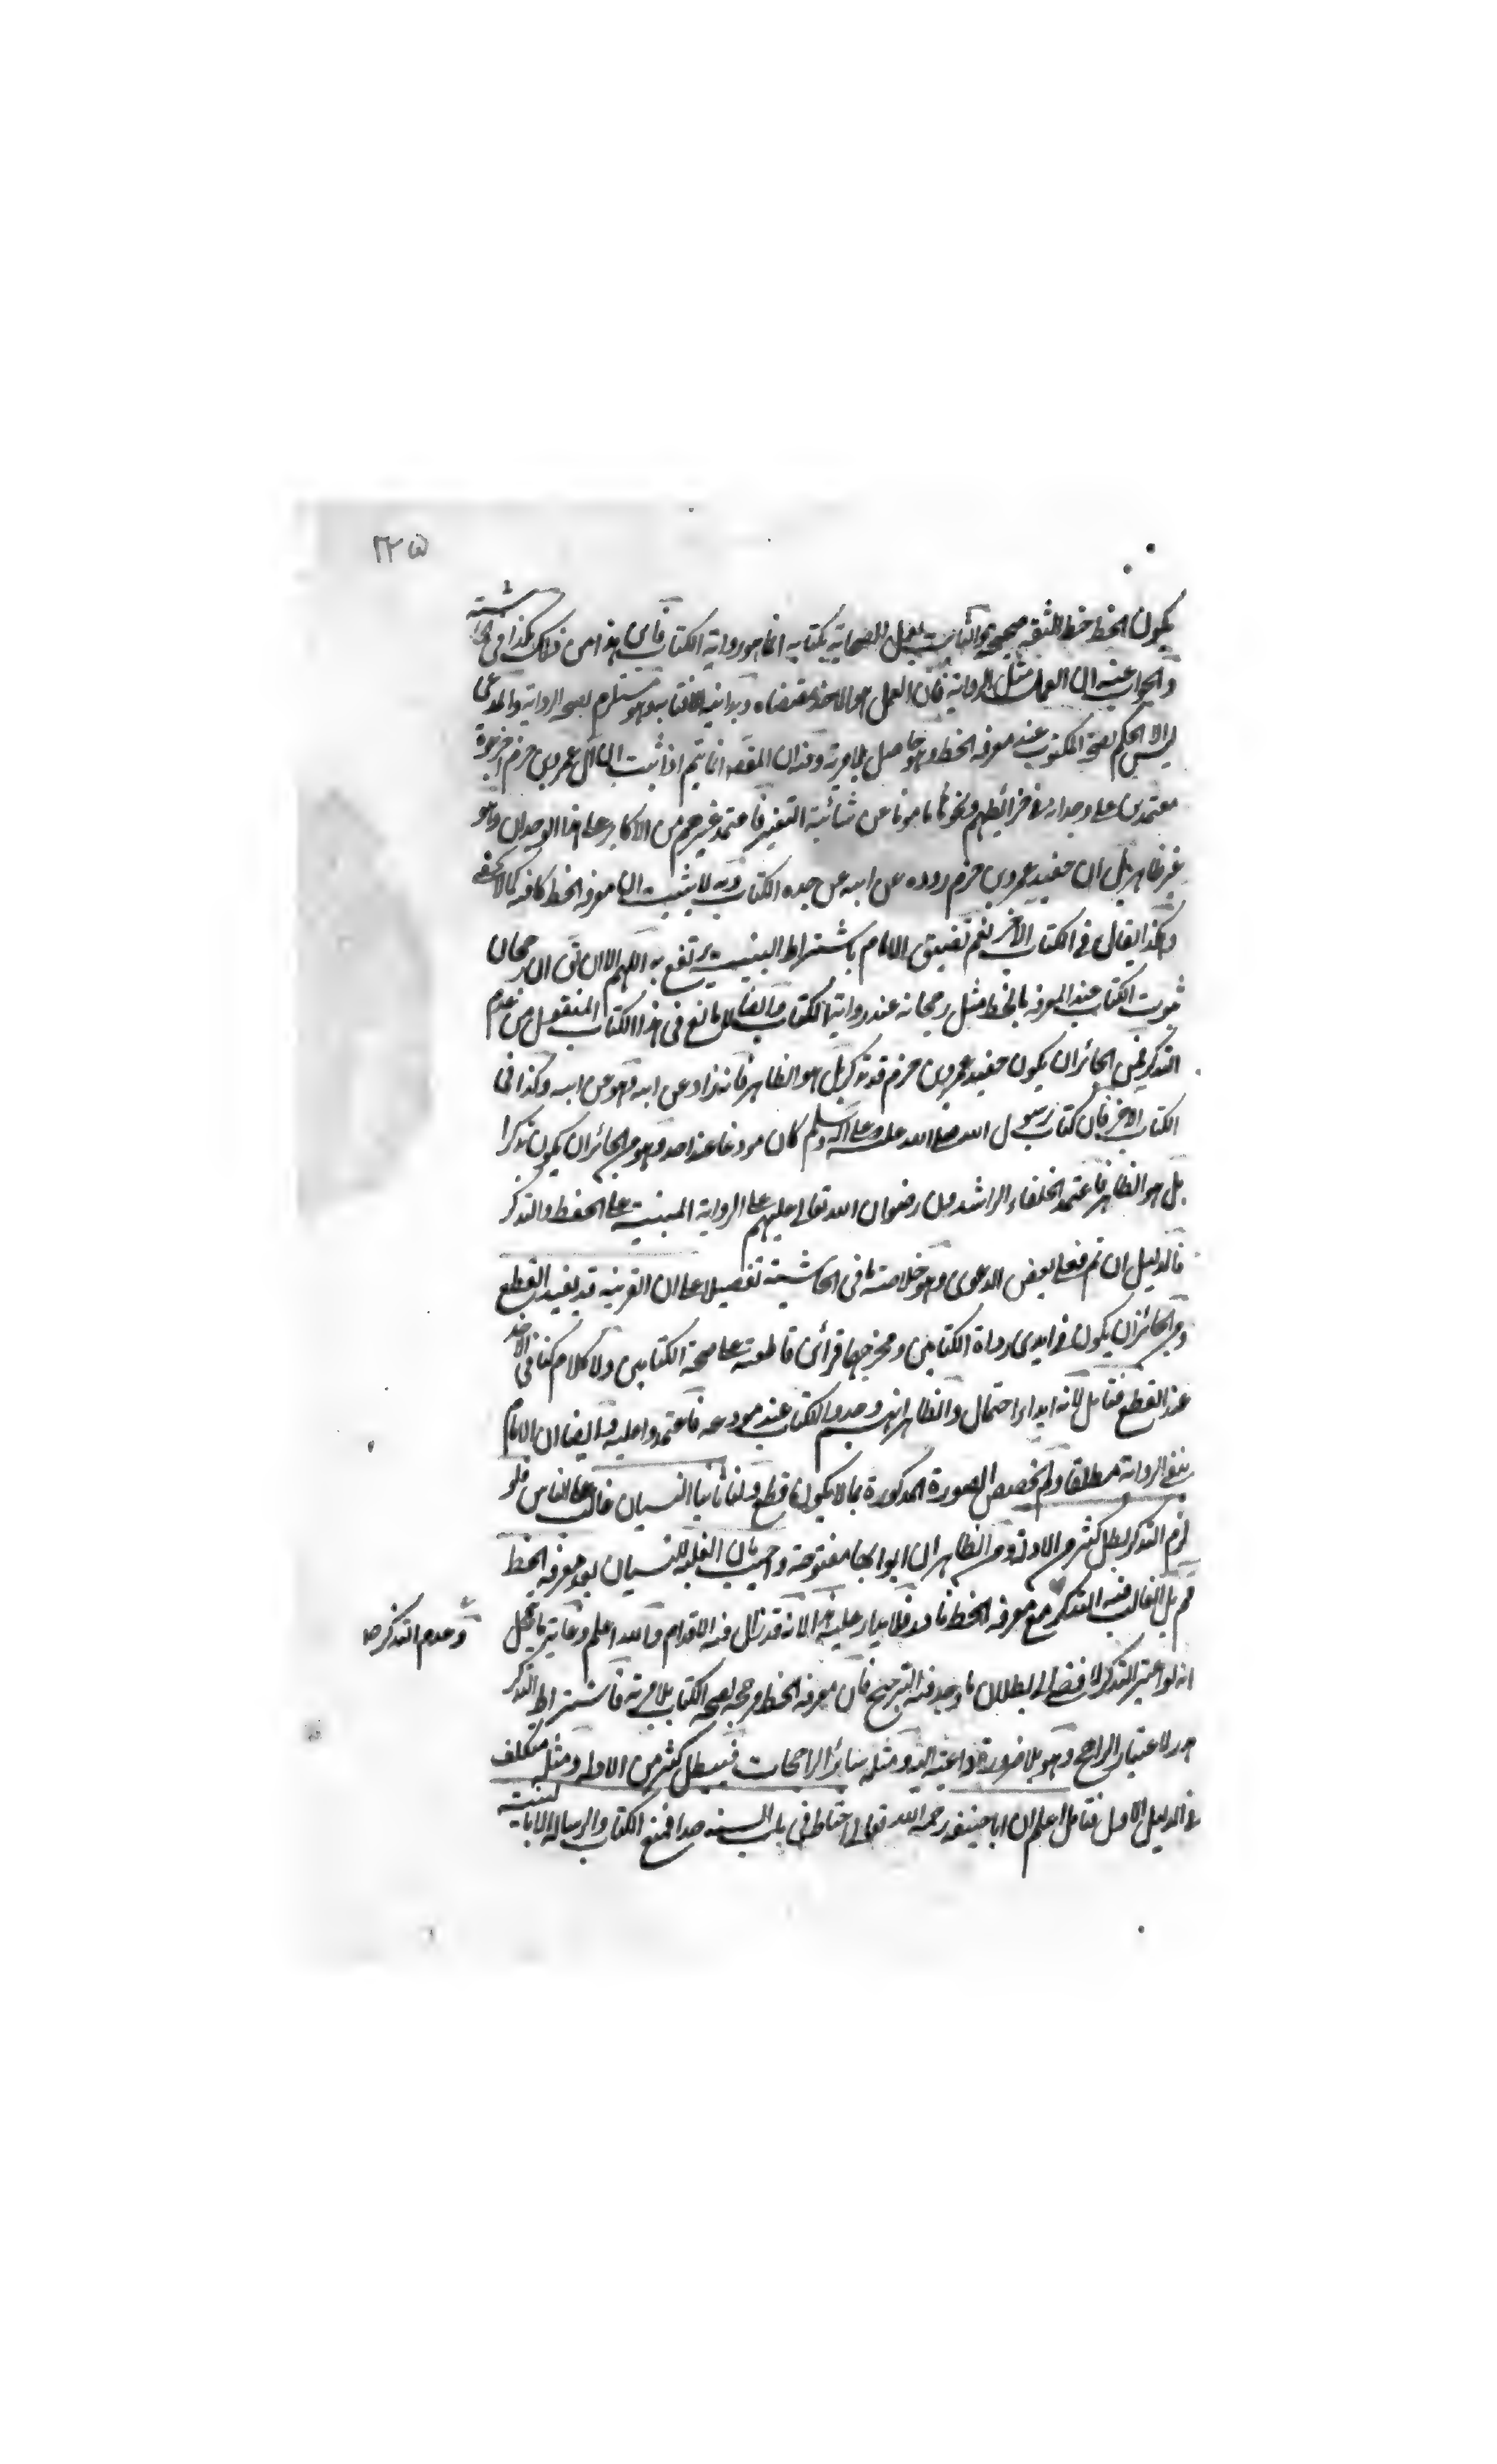 ٢٢٥
يكون الخط خط الثقة صحيحة والثابت بعمل الصحابة بكتابه انما هو رواية الكتاب فاين هذا من ذاك كذا في الحاشية
والجواب عنه ان العمل مثل الرواية فان العمل هو الاخذ بمقتضاه وهو مستلزم لصحة الرواية والمدعى
ليس الا الحكم بصحة المكتوب عند معرفة الخط وهو حاصل بلا مرية وفيه ان المقصد انما يتم اذا ثبت ان آل عمرو بن حزم اخرجوه
معتمدين على وجدانه في خرائطهم ونحوها مامونا عن شائبة التغير فاعتمد غيرهم من الاكابر على هذا الوجدان وهو
غير ظاهر بل ان حفيد عمرو بن حزم رواه عن ابيه عن جده الكتاب وبه لا يثبت ان معرفة الخط كافية كما لا يخفى
وهكذا يقال في الكتاب الآخر نعم تضييق الامام باشتراط البينة يرتفع به اللهم الا ان يق ان رجحان
ثبوت الكتاب عند المعرفة بالخط مثل رجحانه عند رواية الكتاب وايضا لا مانع في هذا الكتاب المنقول من عدم
التذكر فمن الجائز ان يكون حفيد عمرو بن حزم قد تذكر بل هو الظاهر فانه رواه عن ابيه وهو عن ابيه وكذا في
الكتاب الآخر فان كتاب رسول الله صلى الله عليه وعلى آله وسلم كان مودعا عند احد وهو من الجائز ان يكون تذكرا
بل هو الظاهر فاعتمد الخلفاء الراشدون رضوان الله تعالى عليهم على الرواية المبنية على الحفظ والتذكر
فالدليل ان تم فعلى بعض الدعوى وهو خلاصة ما في الحاشية تفصيلا على ان القرينة قد يفيد القطع
ومن الجائز ان يكون في ايدي رواة الكتابين ومخرجيها قرائن قاطعة على صحة الكتابين ولا كلام لنا في الاخذ
عند القطع فتامل لانه ابداء احتمال والظاهر انهم وجدوا الكتاب عند مودعه فاعتمدوا عليه وايضا ان الامام
ينفي الرواية مطلقا ولم يخصص الصورة المذكورة بما لا يكون قطع ولنا ثانيا النسيان غالب على الناس فلو
لزم التذكر لبطل كثير من الادلة ومن الظاهر ان ابوابها مفتوحة واجيب بان الغلبة للنسيان بعد معرفة الخط
مم بل الغالب فيه التذكر مع معرفة الخط نادر فلا يدار عليه الا انه قد تزل فيه الاقدام والله اعلم وغاية ما يقال
وعدم التذكر صح
انه لو اعتبر التذكر لافضى الى بطلان ما وجد فيه الترجيح فان معرفة الخط مرجحة لصحة الكتاب بلا مرية فاشتراط التذكر
هدر لاعتبار الراجح وهو بلا ضرورة داعية اليه ومثله سائر الراجحات فيبطل كثير من الادلة ومثله متكلف
في الدليل الاول فتامل اعلم ان ابا حنيفة رحمه الله تعالى احتاط في باب السنة جدا فمنع الكتاب والرسالة الا بالبينة